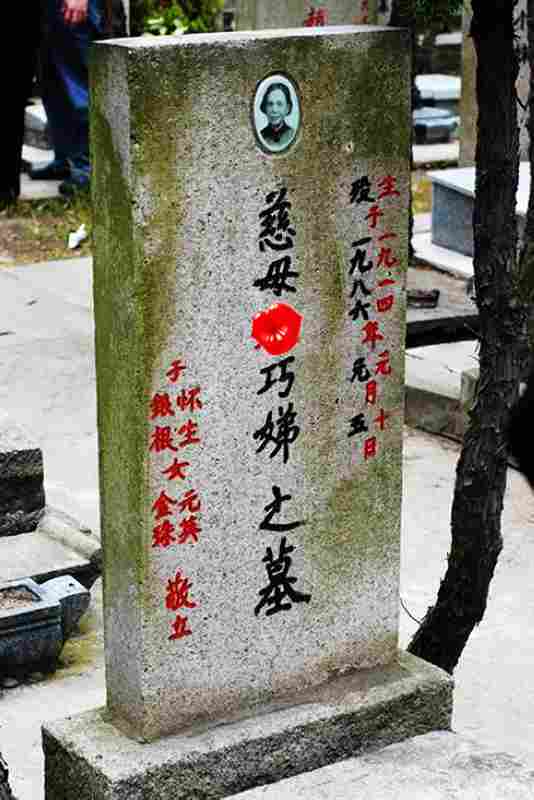 生于一九一四年元月十日
殁于一九八六年元月五日
慈母巧娣之墓
子 怀生 银根
女 元英 金珠
敬立